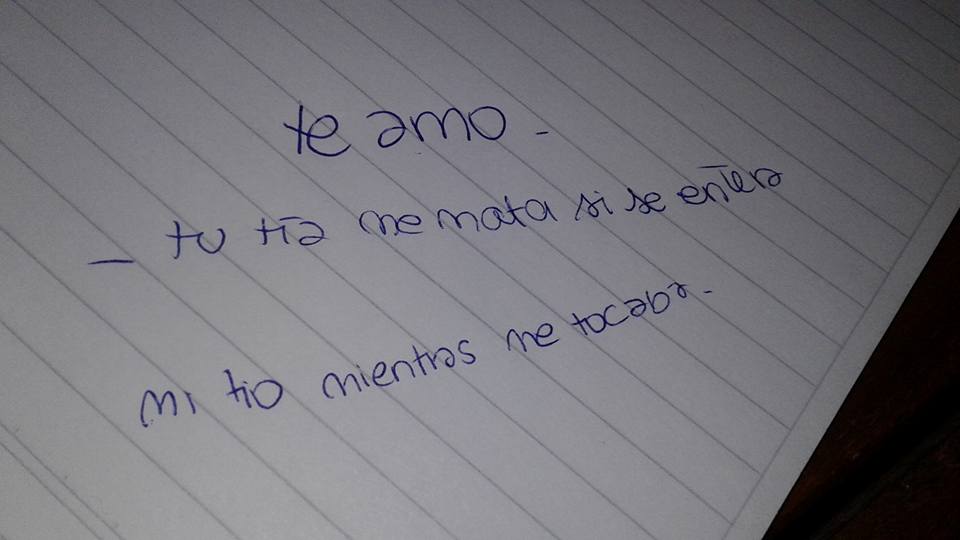 te amo -
- tu tia me mata si se entera
mi tio mientras me tocaba.